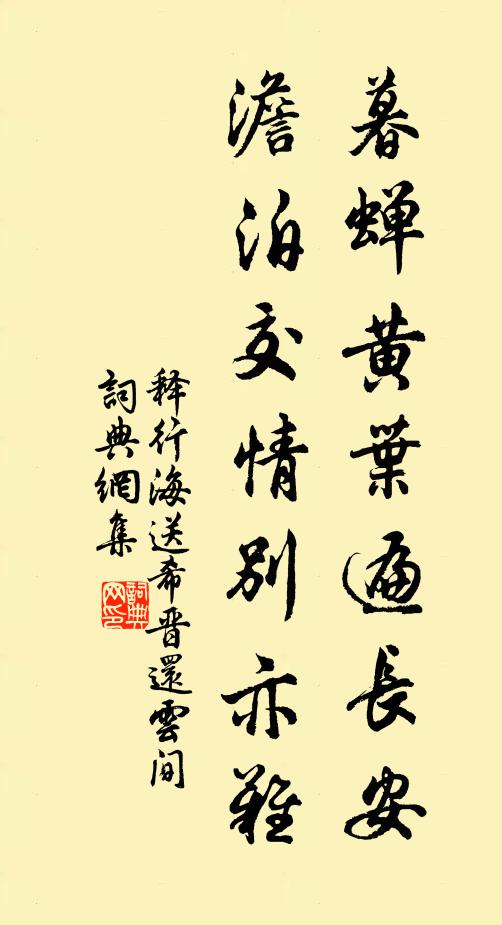 暮蝉黄葉遍長安
澹泊交情别亦難
释行海送希晋還雲间
詞典網集
詞典
网印